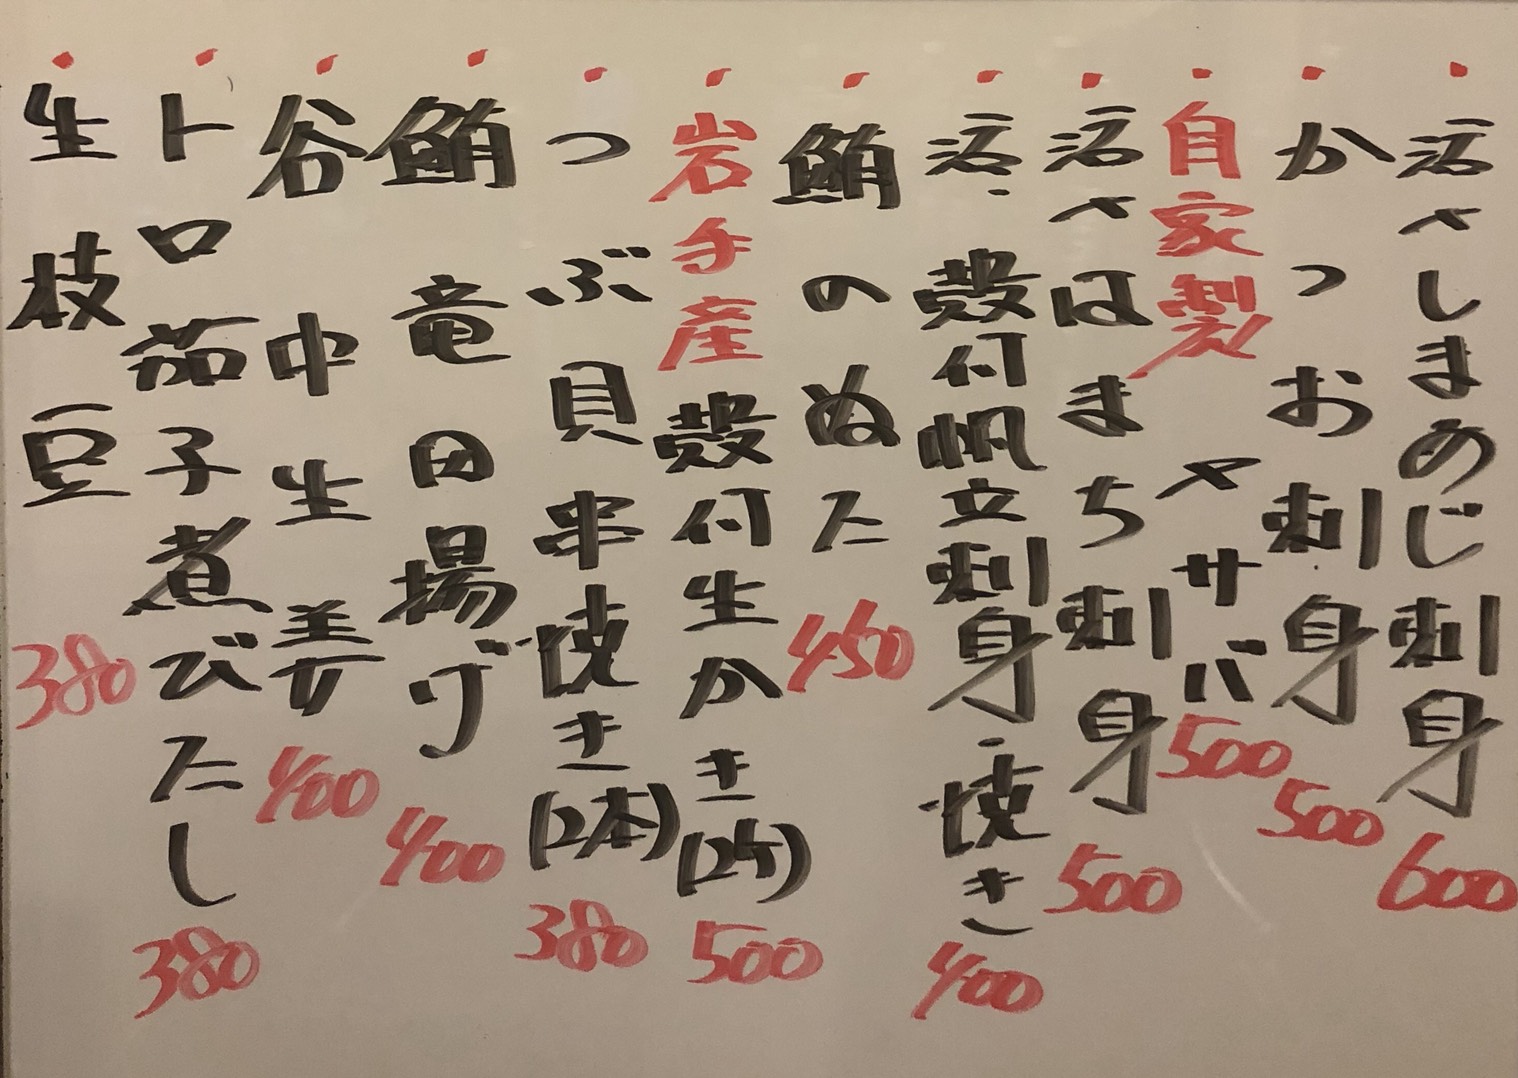 活〆しまあじ刺身 600
かつお刺身 500
自家製 〆サバ 500
活〆はまち刺身 500
活・殻付帆立刺身・焼き 400
鮪のぬた 450
岩手産 殻付生かき(2ケ) 500
つぶ貝串焼き(2本) 380
鮪竜田揚げ 400
谷中生姜 400
トロ茄子煮びたし 380
生枝豆 380